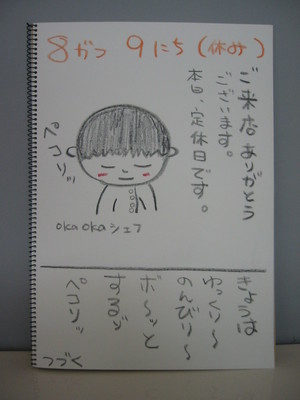 8がつ 9にち(休み)
ご来店ありがとう
ございます。
本日、定休日です。
ペコリッ
okaokaシェフ
きょうは
ゆっくり〜
のんびり〜
ボ〜ッと
するゾ
ペコリッ
つづく